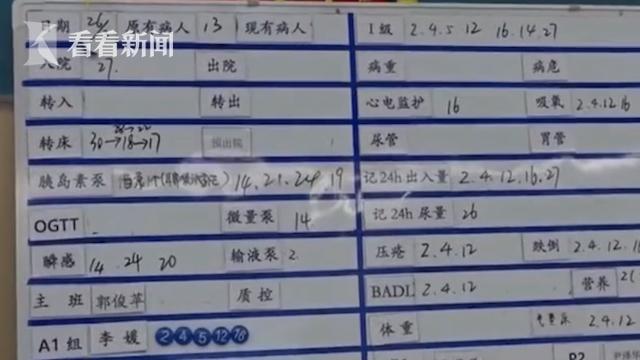 看看新闻
日期 26/ 原有病人 13 现有病人
I级 2.4.5 12 16.14.27
入院 27. 出院
病重 病危
转入 转出
心电监护 16 吸氧 2.4.12 16
转床 30→18→17 预出院
尿管 胃管
胰岛素泵 14.21.24 19
记24h出入量 2.4.12.16.27
OGTT 微量泵 14
记24h尿量 26
瞬感 14 24 20 输液泵 2
压疮 2.4.12 跌倒 2.4.12
主班 郭俊苹 质控
BADL 2.4.12 营养
A1组 李媛 2 4 5 12 16
体重 2.4.12